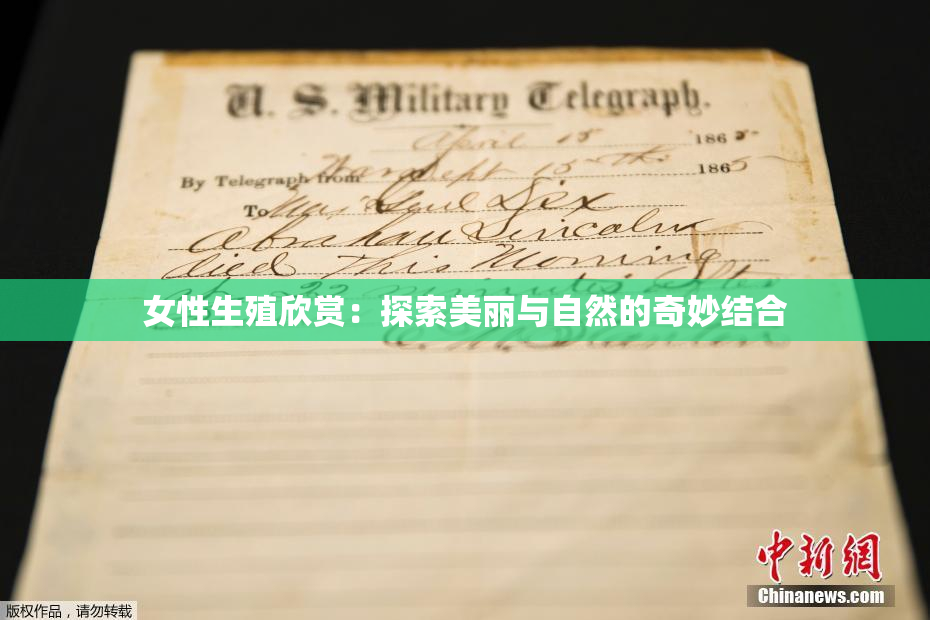 U. S. Military Telegraph.
April 15 1865
By Telegraph from War Dept 15th 1865
To Maj Genl Dix
Abraham Lincoln
died This Morning
22 minutes after
女性生殖欣赏：探索美丽与自然的奇妙结合
E. M. Stanton
中新网
Chinanews.com
版权作品，请勿转载